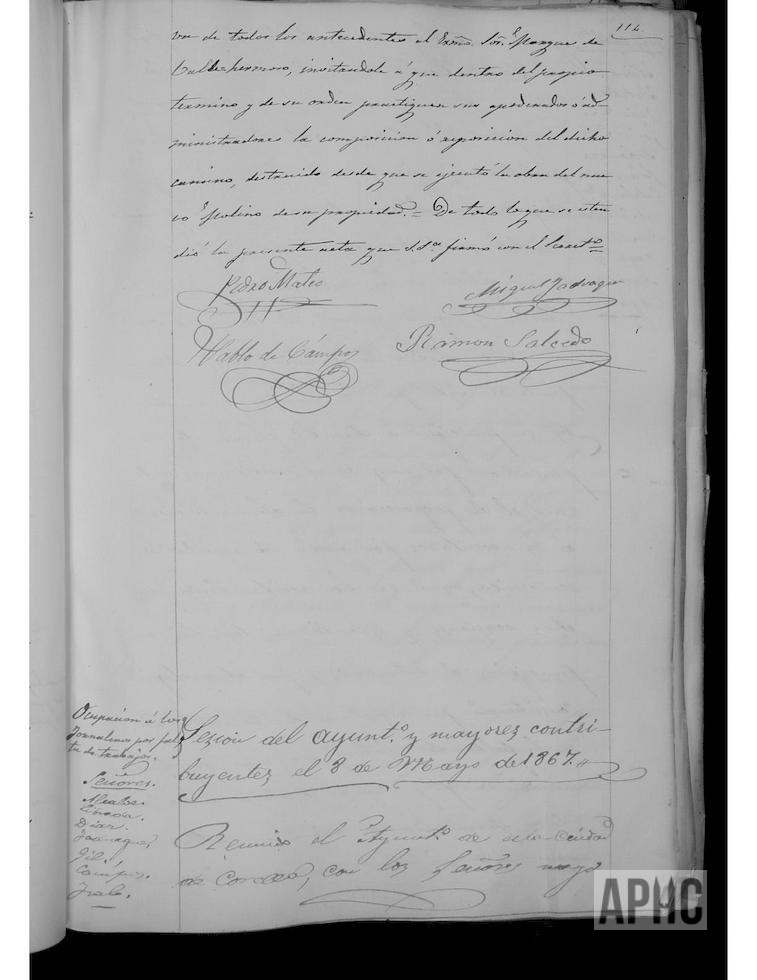 114
va de todos los antecedentes al Exmo. Sor. Marques de
Valdehermoso, invitandole á que dentro del propio
termino y de su orden practiquen sus apoderados ó ad-
ministradores la composicion ó reposicion del dicho
camino, destruido desde que se ejecutó la obra del nue-
vo Molino de su propiedad. = De todo lo que se esten
dió la presente acta que S.S.ª firmó con el Secret.º =
Pedro Mateo
Miguel
Pablo de Cámpos
Ramon Salcedo
Ocupacion á los
Jornaleros por fal-
ta de trabajo.
Señores.
Diaz.
Gil.
Cámpos.
Sesion del ayunt.º y mayores contri-
buyentes el 8 de Mayo de 1867.
Reunido el Ayunt.º de esta Ciudad
de con los Señores mayo
APHC